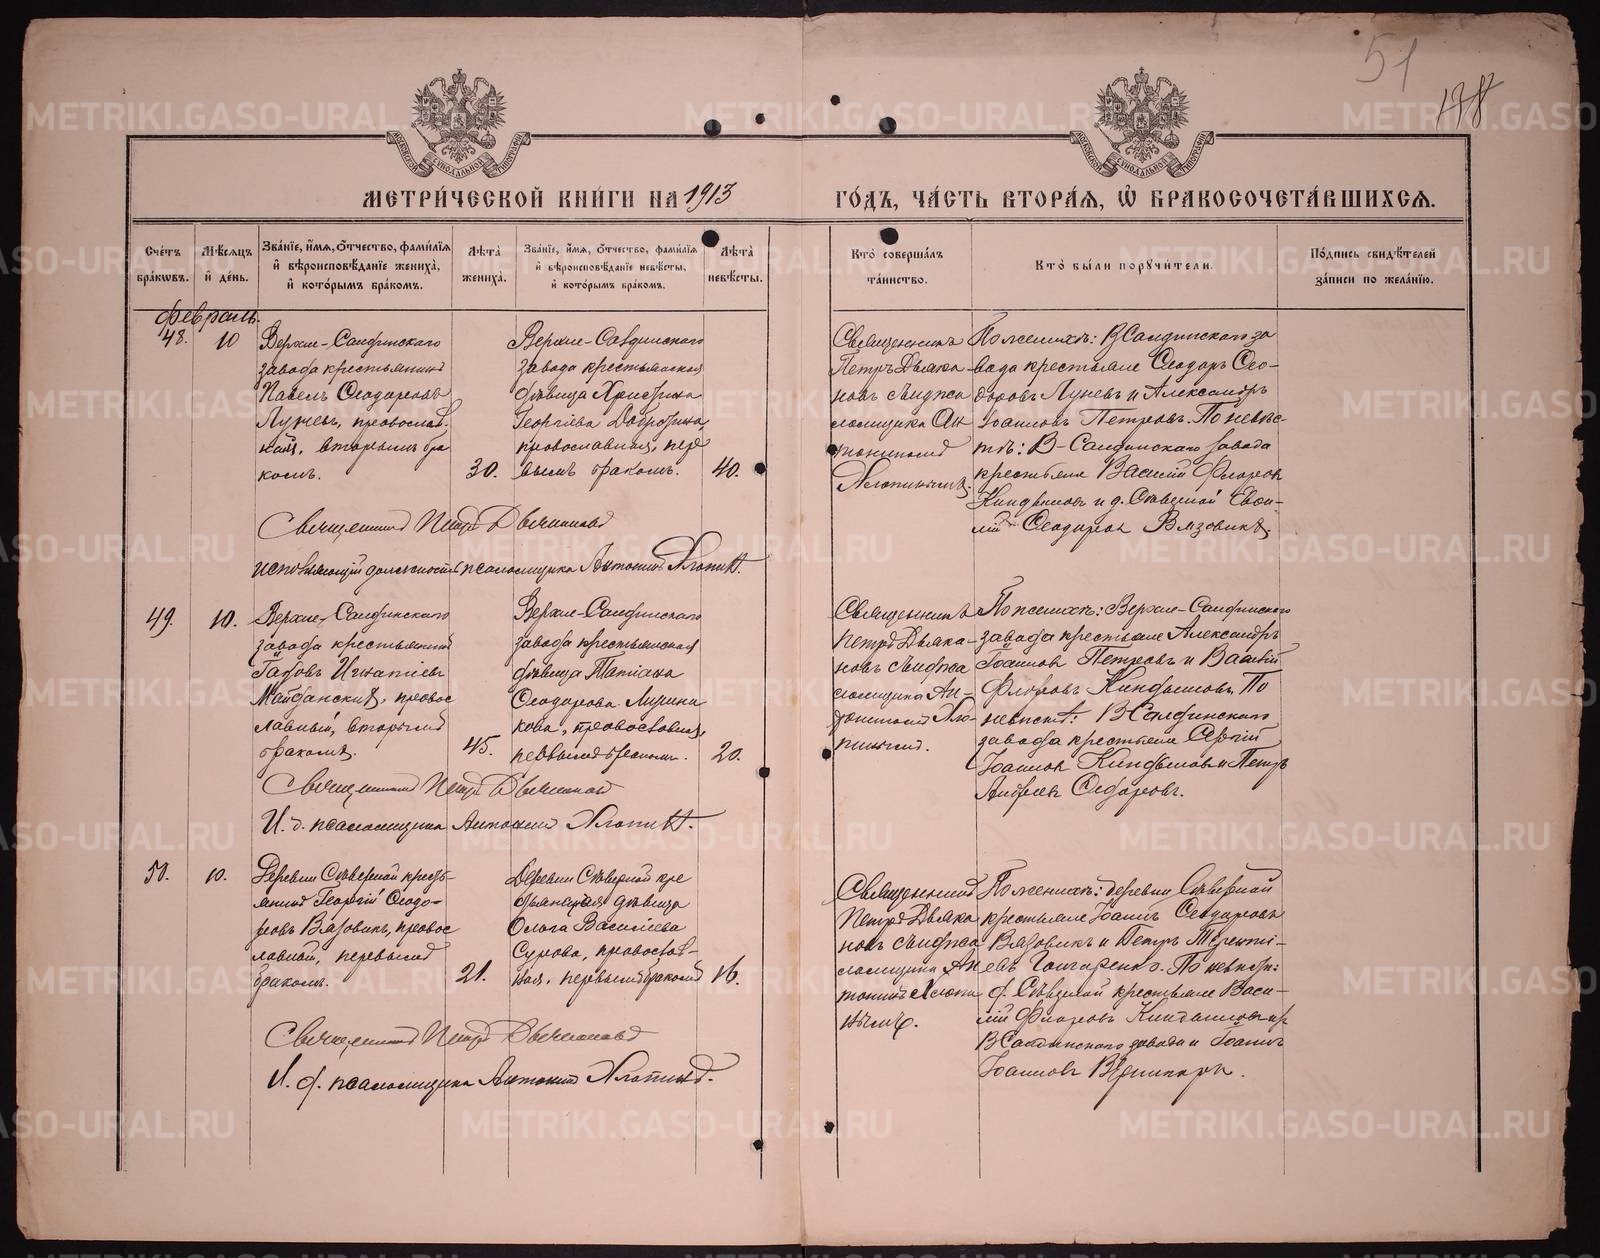 51
МЕТРИ́ЧЕСКОЙ КНИ́ГИ НА 1913
ГО́ДЪ, ЧА́СТЬ ВТОРА́Я, Ѡ҆ БРАКОСОЧЕТА́ВШИХСЯ.
Сче́тъ бра́кѡвъ.
Мѣ́сяцъ и҆ де́нь.
Зва́нїе, и҆́мя, ѻ҆́тчество, фами́лїя
и҆ вѣроисповѣ́данїе жениха̀,
и҆ кото́рымъ бра́комъ.
Лѣ́та жениха̀.
Зва́нїе, и҆́мя, ѻ҆́тчество, фами́лїя
и҆ вѣроисповѣ́данїе невѣ́сты,
и҆ кото́рымъ бра́комъ.
Лѣ́та невѣ́сты.
Кто̀ соверша́лъ
та́инство.
Кто̀ бы́ли порꙋчи́тели.
По́дпись свидѣ́телей
за́писи по жела́нїю.
Февраль.
48.
10
Верхне-Салдинскаго
завода крестьянинъ
Павелъ Ѳеодоровъ
Луневъ, православ
ный, вторымъ бра
комъ.
30.
Верхне-Салдинскаго
завода крестьянская
дѣвица Христина
Георгіева Добродина,
православная, пер
вымъ бракомъ.
40.
Священникъ
Петръ Дьяко
новъ съ и. д. пса
ломщика Ан
тониномъ
Хлопинымъ.
По женихѣ: В Салдинскаго за
вода крестьяне Ѳеодоръ Ѳео-
доровъ Луневъ и Александръ
Іоанновъ Петровъ. По невѣс
тѣ: В-Салдинскаго завода
крестьяне Василій Флоровъ
и д. Сѣверной
Ѳеодоровъ Вязовикъ
Священникъ Петръ Дьяконовъ
исполняющій должность псаломщика Антонинъ Хлопинъ.
49.
10.
Верхне-Салдинскаго
завода крестьянинъ
Іаковъ Игнатіевъ
Майданскій, правос
лавный, вторымъ
бракомъ.
45.
Верхне-Салдинскаго
завода крестьянская
дѣвица Татіана
Ѳеодорова
православная,
первымъ бракомъ.
20.
Священникъ
Петръ Дьяко-
новъ съ и. д. пса
ломщика Ан-
тониномъ Хло-
пинымъ.
По женихѣ: Верхне-Салдинскаго
завода крестьяне Александръ
Іоанновъ Петровъ и Василій
Флоровъ По
невѣстѣ: В Салдинскаго
завода крестьяне Сергій
Іоанновъ и Петръ
Андреевъ Сидоровъ.
Священникъ Петръ Дьяконовъ
И. д. псаломщика Антонинъ Хлопинъ.
50.
10.
Деревни Сѣверной кресть-
янинъ Георгій Ѳеодо-
ровъ Вязовикъ, правос
лавный, первымъ
бракомъ.
21.
Деревни Сѣверной кре
стьянская дѣвица
Ольга Василіева
Сурова, православ-
ная, первымъ бракомъ
16.
Священникъ
Петръ Дьяко
новъ съ и. д. пса
ломщика Ан
тониномъ Хлопи
нымъ.
По женихѣ: деревни Сѣверной
крестьяне Іоаннъ Ѳеодоровъ
Вязовикъ и Петръ Терентi-
евъ Гончаренко. По невѣстѣ:
д. Сѣверной крестьяне Васи-
лій Флоровъ
В Салдинскаго завода Іоаннъ
Іоанновъ
Священникъ Петръ Дьяконовъ
И. д. псаломщика Антонинъ Хлопинъ.
METRIKI.GASO-URAL.RU